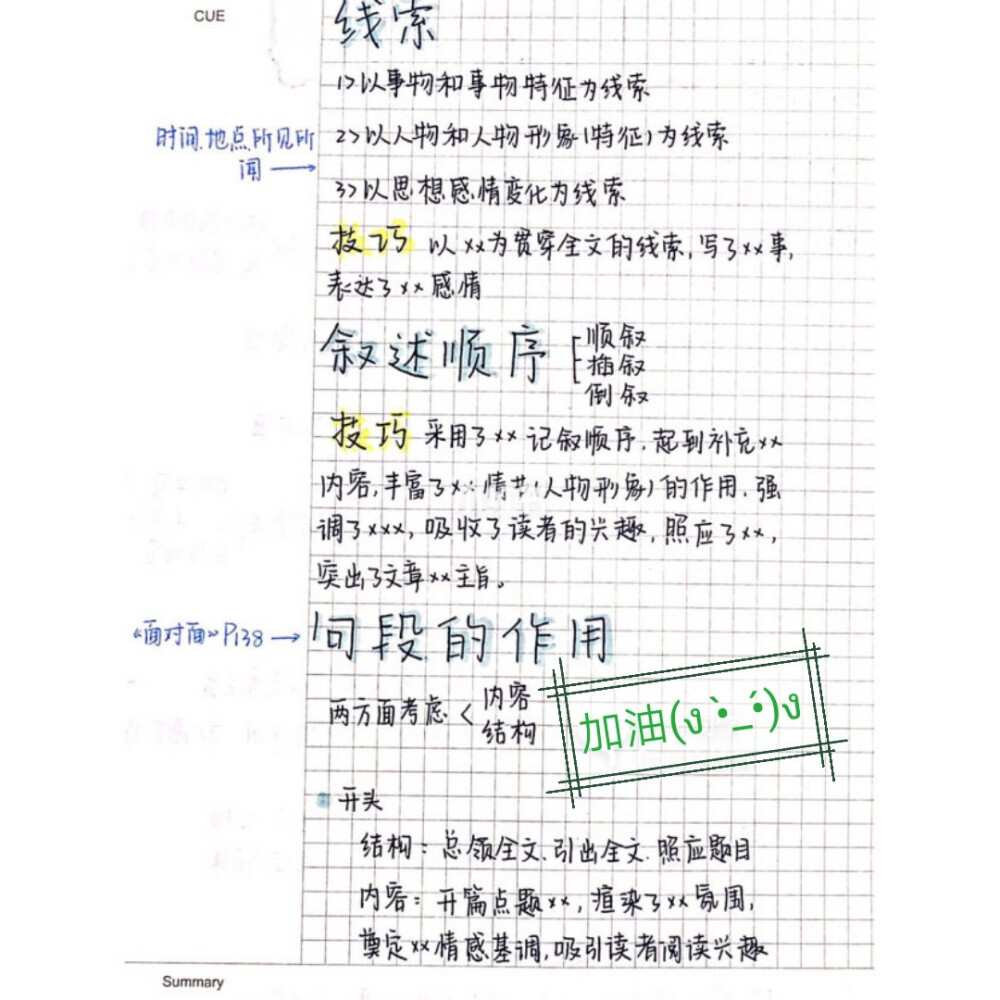 CUE
线索
1>以事物和事物特征为线索
时间、地点、所见所
闻→
2>以人物和人物形象(特征)为线索
3>以思想感情变化为线索
技巧 以xx为贯穿全文的线索,写了xx事,
表达了xx感情
叙述顺序
顺叙
插叙
倒叙
技巧 采用了xx记叙顺序,起到补充xx
内容,丰富了xx情节(人物形象)的作用,强
调了xxx,吸收了读者的兴趣,照应了xx,
突出了文章xx主旨。
《面对面》P138→
句段的作用
两方面考虑<
内容
结构
加油(ง •̀_•́)ง
开头
结构:总领全文、引出全文、照应题目
内容:开篇点题xx,渲染了xx氛围,
奠定xx情感基调,吸引读者阅读兴趣
Summary